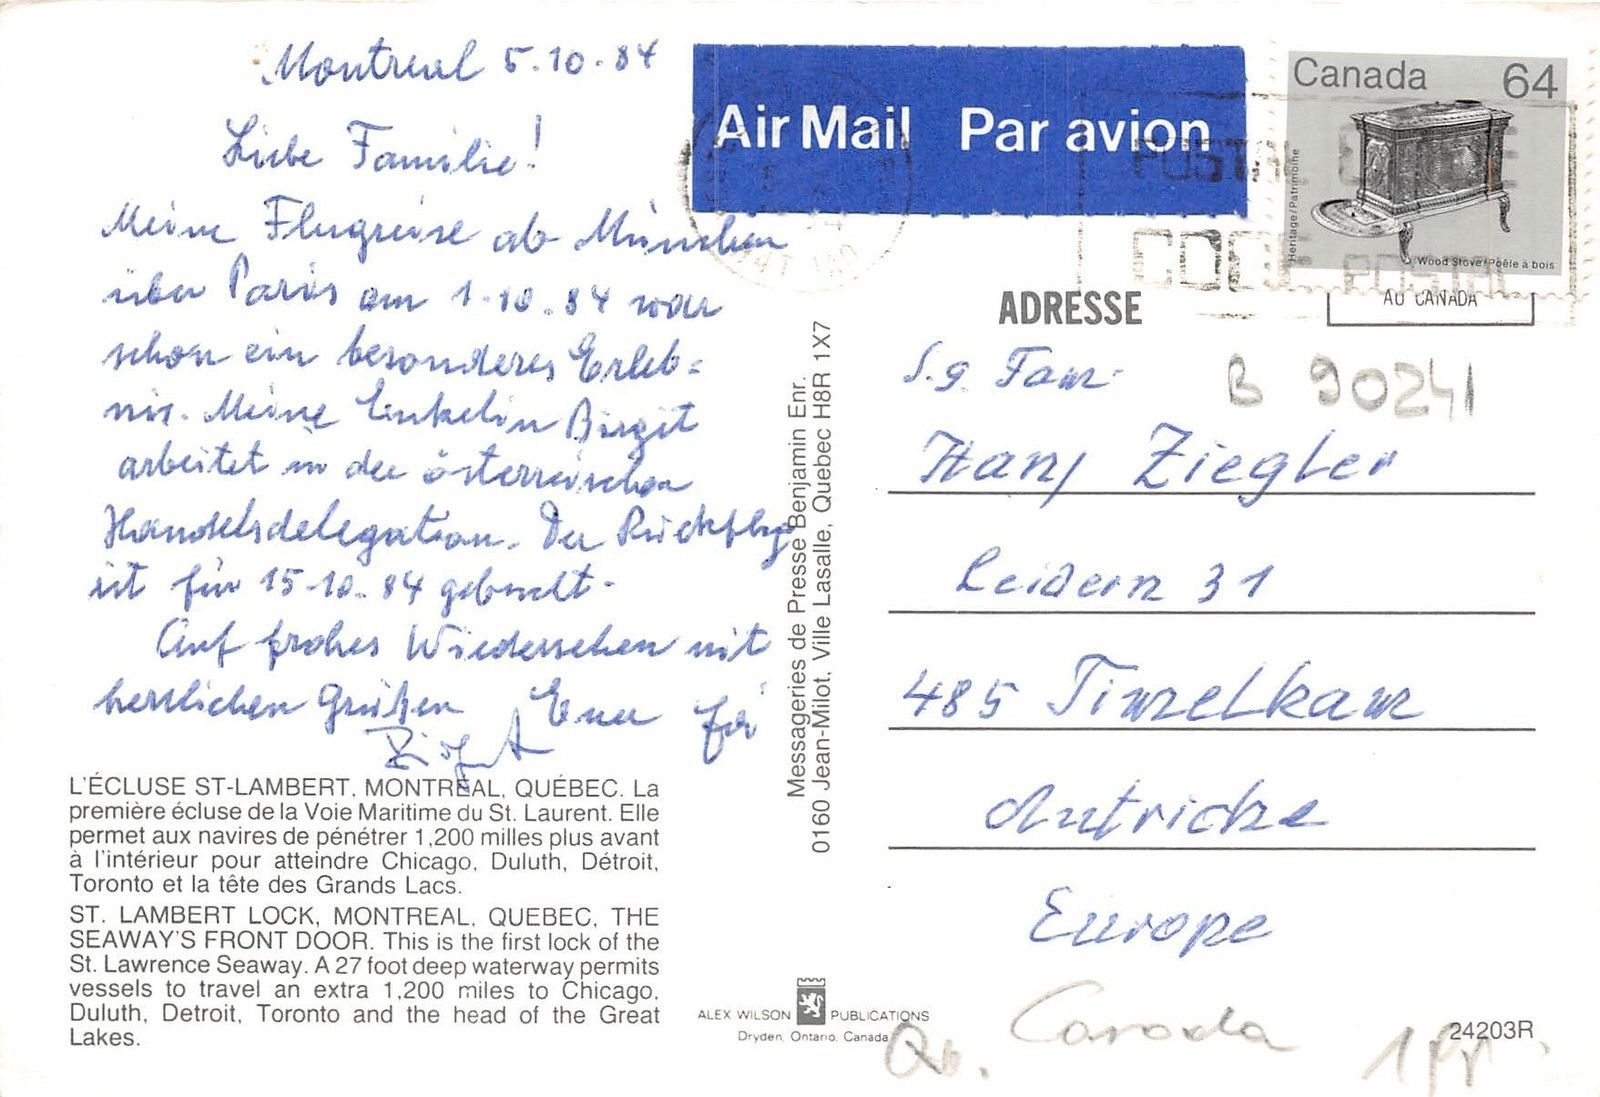 Montreal 5.10.84
Liebe Familie!
Meine Flugreise ab München
über Paris am 1.10.84 war
schon ein besonderes Erleb=
nis. Meine Enkelin Birgit
arbeitet in der österreischen
Handelsdelegation. Der Rückflug
ist für 15.10.84 gebucht.
Auf frohes Wiedersehen mit
herzlichen Grüßen Euer
L'ÉCLUSE ST-LAMBERT, MONTRÉAL, QUÉBEC. La
première écluse de la Voie Maritime du St. Laurent. Elle
permet aux navires de pénétrer 1,200 milles plus avant
à l'intérieur pour atteindre Chicago, Duluth, Détroit,
Toronto et la tête des Grands Lacs.
ST. LAMBERT LOCK, MONTREAL, QUEBEC, THE
SEAWAY'S FRONT DOOR. This is the first lock of the
St. Lawrence Seaway. A 27 foot deep waterway permits
vessels to travel an extra 1,200 miles to Chicago,
Duluth, Detroit, Toronto and the head of the Great
Lakes.
Messageries de Presse Benjamin Enr.
0160 Jean-Milot, Ville Lasalle, Quebec H8R 1X7
ALEX WILSON PUBLICATIONS
Dryden, Ontario, Canada
Air Mail Par avion
Canada 64
Heritage/Patrimoine
Wood Stove/Poêle à bois
POSTAL CODE
CODE POSTAL
AU CANADA
ADRESSE
B 90241
S.g. Fam.
Hans Ziegler
Leidern 31
485 Timelkam
Autriche
Europe
Qu. Canada
24203R